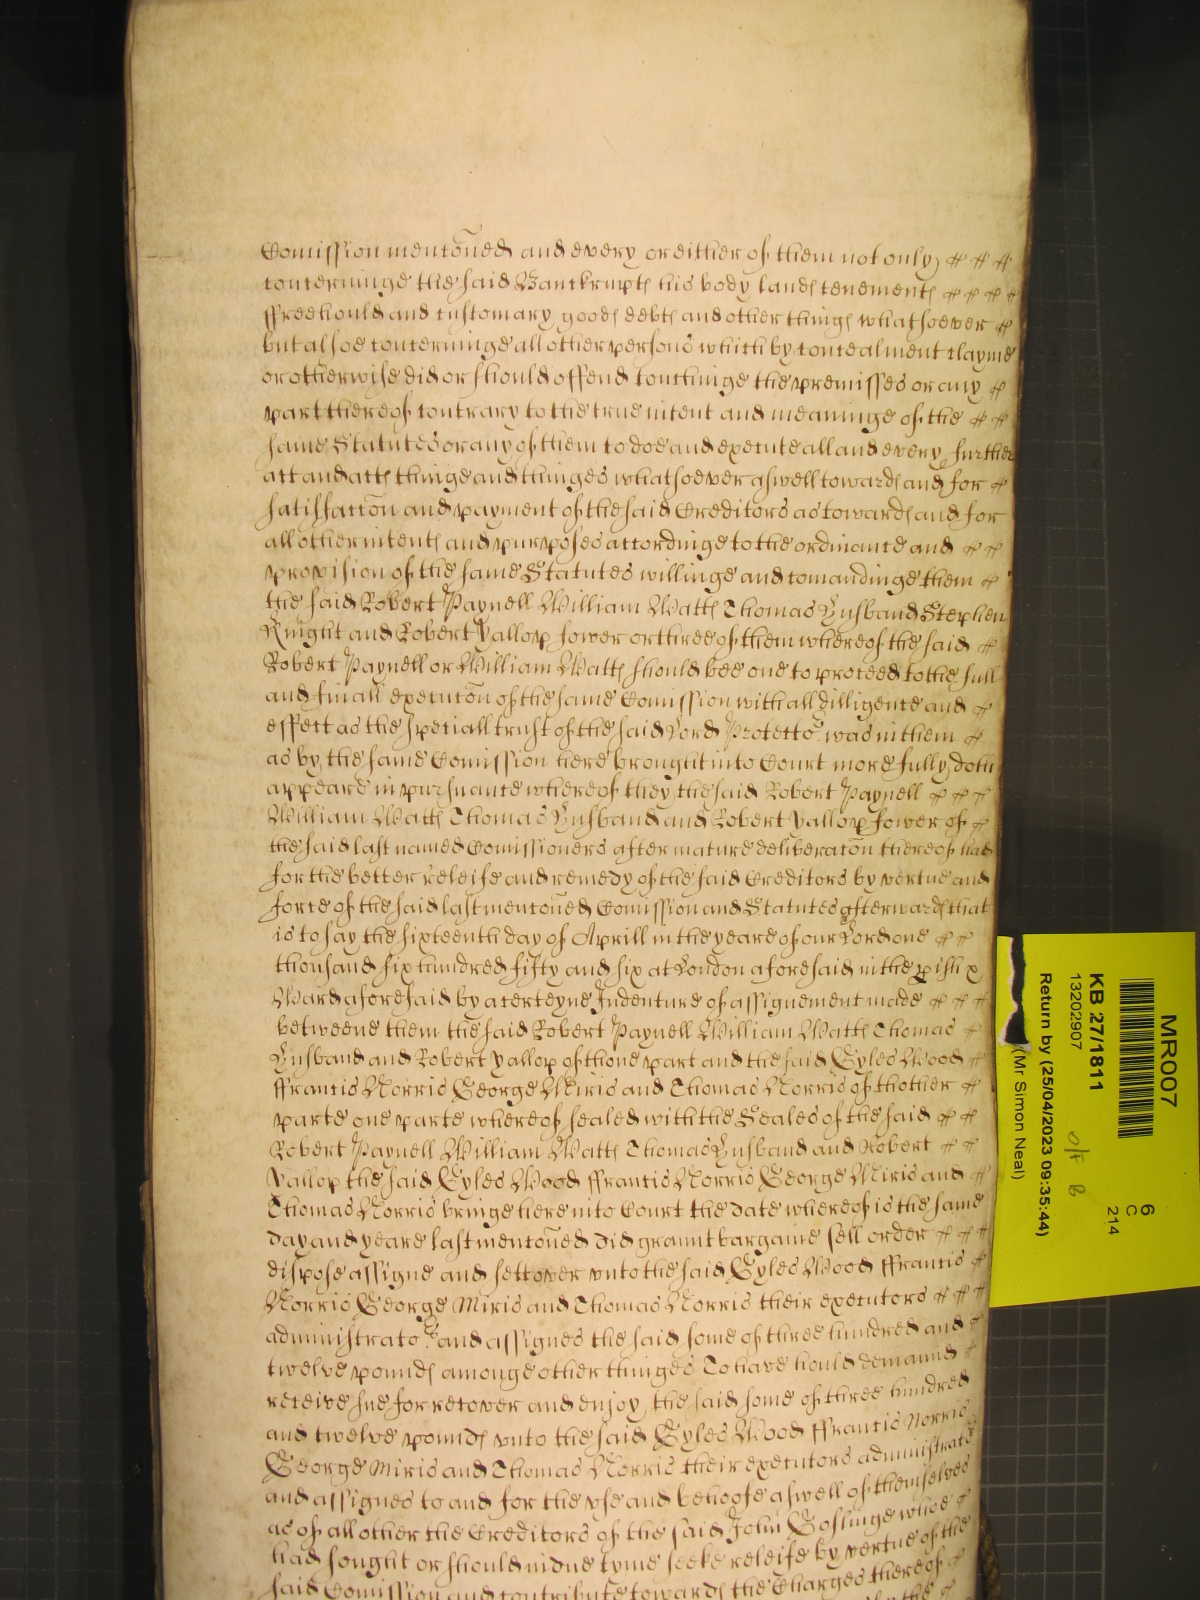 Comission mentoned and every or either of them not only
concerninge the said Banckrupt his body lands tenements
ffreehould and customary goods debts and other things whatsoever
but alsoe concerninge all other persons which by concealment clayme
or otherwise did or should offend touchinge the premisses or any
part thereof contrary to the true intent and meaninge of the
same Statutes or any of them to doe and execute all and every further
act and acts thinge and thinges whatsoever aswell towards and for
satisfaccon and payment of the said Creditors as towards and for
all other intents and purposes accordinge to the ordinance and
provision of the same Statutes willinge and comandinge them
the said Robert Paynell William Watts Thomas Husband Stephen
Knight and Robert Yallop fower or three of them whereof the said
Robert Paynell or William Watts should bee one to proceed to the full
and finall execucon of the same Comission with all dilligence and
effect as the speciall trust of the said Lord Protector was in them
as by the same Comission here brought into Court more fully doth
appeare in pursuance whereof they the said Robert Paynell
William Watts Thomas Husband and Robert Yallop fower of
the said last named Comissioners after mature deliberacon thereof had
for the better releife and remedy of the said Creditors by vertue and
force of the said last mentoned Comission and Statutes afterwards that
is to say the sixteenth day of Aprill in the yeare of our Lord one
thousand six hundred fifty and six at London aforesaid in the pish &
Ward aforesaid by a certeyne Indenture of assignement made
betweene them the said Robert Paynell William Watts Thomas
Husband and Robert Yallop of thone part and the said Gyles Wood
ffrancis Norris George Miris and Thomas Norris of thother
parte one parte whereof sealed with the Seales of the said
Robert Paynell William Watts Thomas Husband and Robert
Yallop the said Gyles Wood ffrancis Norris George Miris and
Thomas Norris bringe here into Court the date whereof is the same
day and yeare last mentoned did graunt bargaine sell order
dispose assigne and sett over unto the said Gyles Wood ffrancis
Norris George Miris and Thomas Norris their executors
administrators and assignes the said some of three hundred and
twelve pounds amonge other thinges To have hould demaund
receive sue for recover and enjoy the said some of three hundred
and twelve pounds unto the said Gyles Wood ffrancis Norris
George Miris and Thomas Norris their executors administrators
and assignes to and for the use and behoofe aswell of themselves
as of all other the Creditors of the said John Goslinge whoe
had sought or should in due tyme seeke releife by vertue of the
said Comission and contribute towards the Charges thereof
MR007
KB 27/1811
13202907
Return by (25/04/2023 09:35:44)
(Mr Simon Neal)
6
C
214
o/f B